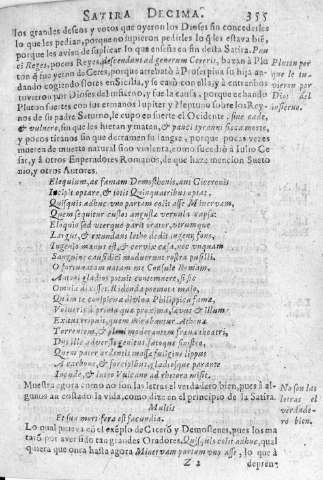 SATIRA DECIMA. 355
los grandes deseos y votos que oyeron los Dioses sin concederles
lo que les pedian, porque no supieron pedirles lo q̃ les estava bien,
porque les aviso de suplicar lo que enseña en fin desta Satira. Pau
ci Reges, pocos Reyes, descendunt ad generum Cereris, baxan à Plu
ton q̃ fue yerno de Ceres, porque arrebatò à Proserpina su hija an-
dando cogiendo flores en Sicilia, y se casò con ella, y à entrambos
tuvieron por Dioses del infierno, y fue la causa, porque echando
Pluton suertes con sus ermanos Iupiter y Neptuno sobre los Rey-
nos de su padre Saturno, le cupo en suerte el Ocidente, sine cæde,
& vulnere, sin que los hieran y maten, & pauci tyranni sicca morte,
y pocos tiranos sin que derramen su sangre, porque pocas vezes
mueren de muerte natural sino violenta, como sucediò à Iulio Ce
sar, y à otros Emperadores Romanos, de que haze mencion Sueto
nio, y otros Autores.
Pluton por
que le tu-
vieron por
Dios del
infierno.
Eloquium, ac famam Demosthenis, aut Ciceronis
Incipit optare, & totis Quinquatribus optat,
Quisquis adhuc uno partam colit asse Minervam,
Quem sequitur custos angustæ vernula capsæ:
Eloquio sed uterque perit orator, utrumque
Largus, & exundans letho dedit ingenij fons,
Ingenio manus est, & cervix cæsa, nec unquam
Sanguine causidici maduerunt rostra pusilli.
O fortunatam natam me Consule Romam.
Antoni gladios potuit contemnere, si sic
Omnia dixisset. Ridenda poemata malo,
Quàm te conspicuæ divina Philippica famæ,
Volveris à prima quæ proxima, sævus & illum
Exitus eripuit, quem mirabantur Athenæ
Torrentem, & pleni moderantem fræna theatri,
Dijs ille adversis genitus, fatoque sinistro,
Quem pater ardentis massæ fuligine lippus
A carbone, & forcipibus, gladiosque parante
Incude, & luteo Vulcano ad rhetora misit.
Muestra agora como no son las letras el verdadero bien, pues à al-
gunos an costado la vida, como dize en el principio de la Satira.
Multis
Et sua mortifera est facundia.
Lo qual prueva en el exẽplo de Cicerõ y Demostenes, pues los ma
tarõ por aver sido tan grandes Oradores. Quisquis colit adhuc, qual
quiera que onra hasta agora Minervam partam uno asse, lo que à
No son las
letras el
verdade-
ro bien.
Z 2 depren-